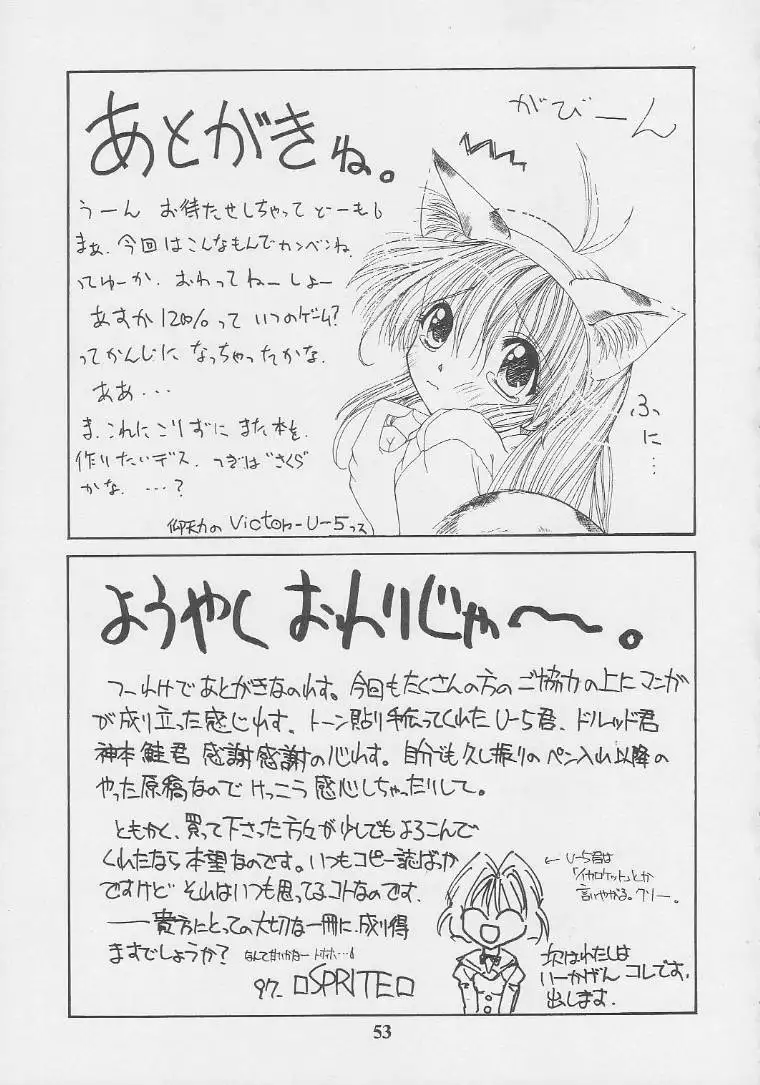 あとがきね。
がびーん
うーん お待たせしちゃって どーも
まぁ、今回はこんなもんでカンベンね、
ってゆーか、おわってねーしょー
あすか120%って いつのゲーム?
ってかんじに なっちゃったかな、
ああ・・・
ま、これにこりずに また本を、
作りたいデス、つぎは"さくら"
かな、・・・?
ふに…
Victor-U-5
ようやく おわりじゃ〜〜。
つーわけであとがきなのれす。今回もたくさんの方のご協力の上にマンガ
が成り立った感じれす、トーン貼り手伝ってくれたU-5君、ドルッド君
神本 鮭君 感謝感謝の心れす。自分でも久し振りのペン入れ以降の
やった原稿なので けっこう 感心しちゃったりして。
ともかく、買って下さった方々が少しでもよろこんで
くれたなら本望なのです。いつもコピー誌ばっか
ですけど それはいつも思ってるコトなのです、
――貴方にとっての大切な一冊に、成り得
ますでしょうか?
97_ □SPRITE□
← U-5君は
「イカロケット」とか
言いやがる。クソー。
次はわたしは
いーかげん コレです、
出します、
53